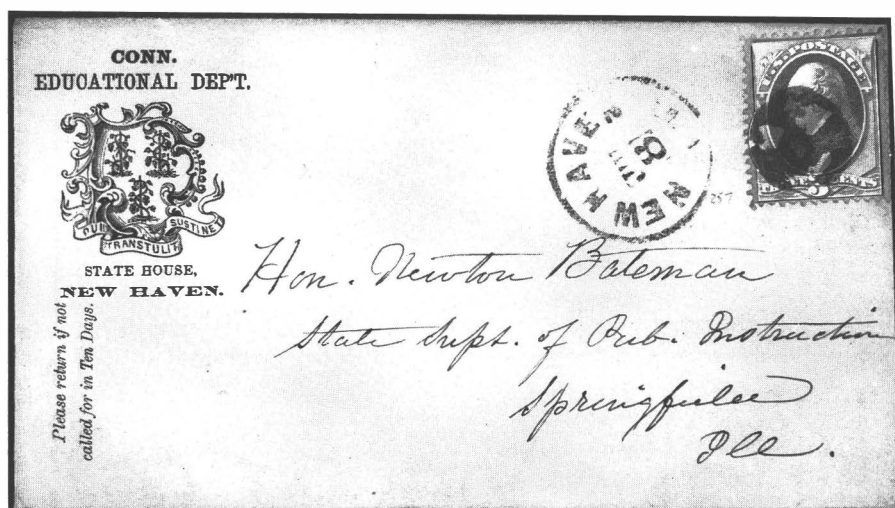 CONN.
EDUCATIONAL DEP'T.
QUI TRANSTULIT SUSTINET
STATE HOUSE,
NEW HAVEN.
Please return if not
called for in Ten Days.
NEW HAVEN
18
U.S. POSTAGE
257
Hon. Newton Bateman
State Supt. of Pub. Instruction
Springfield
Ill.